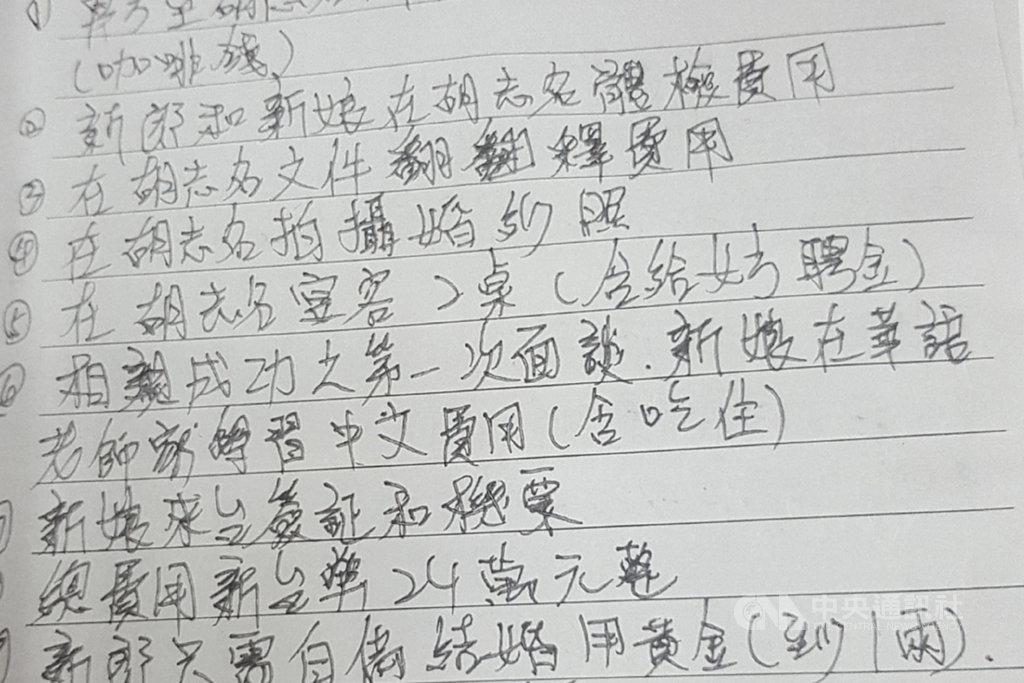 (咖啡錢)
② 新郎和新娘在胡志名體檢費用
③ 在胡志名文件翻譯費用
④ 在胡志名拍攝婚紗照
⑤ 在胡志名宴客2桌(含給女方聘金)
⑥ 相親成功之第一次面談.新娘在華語
老師家學習中文費用(含吃住)
新娘來台簽証和機票
總費用新台幣24萬元整
新郎只需自備結婚用黃金(至少1兩).
中央通訊社